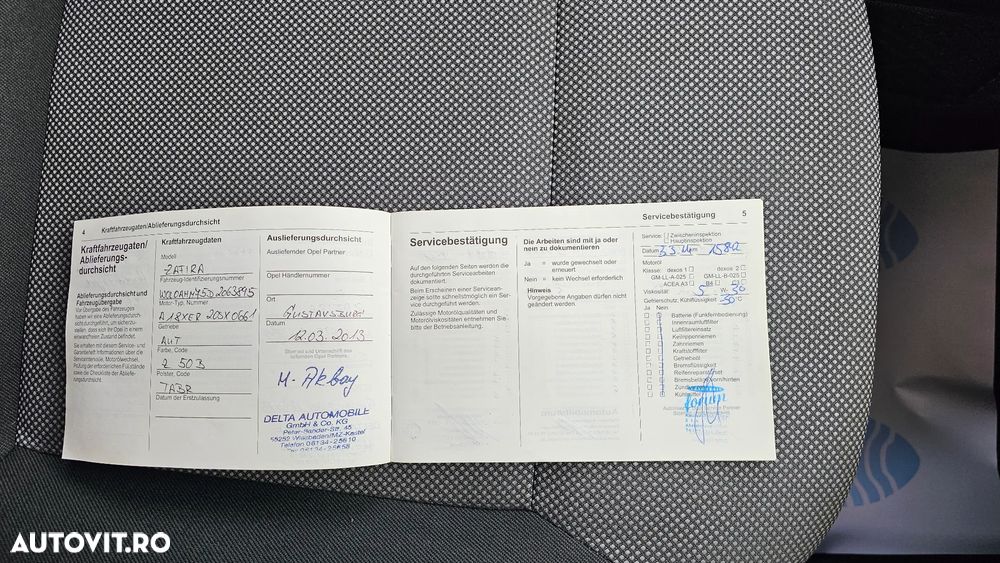 4 Kraftfahrzeugaten/Ablieferungsdurchsicht
Kraftfahrzeugaten/
Ablieferungs-
durchsicht
Ablieferungsdurchsicht und
Fahrzeugübergabe
Vor Übergabe des Fahrzeuges
haben wir eine Ablieferungsdurch-
sicht durchgeführt, um sicherzu-
stellen, dass sich Ihr Opel in einem
einwandfreien Zustand befindet.
Sie erhalten mit diesem Service- und
Garantieheft Informationen über die
Serviceintervalle, Motorölwechsel,
Prüfung der erforderlichen Füllstände
sowie die Checkliste der Abliefe-
rungsdurchsicht.
Kraftfahrzeugdaten
Modell
ZAFIRA
Fahrzeug-Identifizierungsnummer
Motor-Typ, Nummer
A18XER
Getriebe
AUT
Farbe, Code
Z 50B
Polster, Code
TABR
Datum der Erstzulassung
Auslieferungsdurchsicht
Ausliefernder Opel Partner
Opel Händlernummer
Ort
GUSTAVSBURG
Datum
12.03.2013
M. Akbay
DELTA AUTOMOBILE
GmbH & Co. KG
Peter-Sander-Str. 45
55252 Wiesbaden/MZ-Kastel
Telefon 06134-25610
Servicebestätigung
Auf den folgenden Seiten werden die
durchgeführten Servicearbeiten
dokumentiert.
Beim Erscheinen einer Servicean-
zeige sollte schnellstmöglich ein Ser-
vice durchgeführt werden.
Zulässige Motorölqualitäten und
Motorölviskositäten entnehmen Sie
bitte der Betriebsanleitung.
Die Arbeiten sind mit ja oder
nein zu dokumentieren
Ja = wurde gewechselt oder
erneuert
Nein = kein Wechsel erforderlich
Hinweis
Vorgegebene Angaben dürfen nicht
geändert werden.
Servicebestätigung 5
Service: Zwischeninspektion
Hauptinspektion
Datum
Motoröl
Klasse: dexos 1 dexos 2
GM-LL-A-025 GM-LL-B-025
ACEA A3 B4
Viskosität: 5 W- 30
Gefrierschutz, Kühlflüssigkeit: °C
Ja Nein
Batterie (Funkfernbedienung)
Innenraumluftfilter
Luftfiltereinsatz
Keilrippenriemen
Zahnriemen
Kraftstofffilter
Getriebeöl
Bremsflüssigkeit
Reifenreparaturset
forum
AUTOVIT.RO